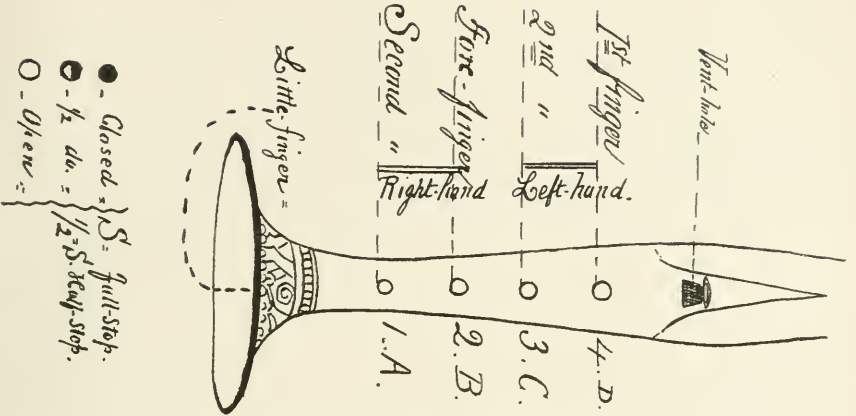 Vent-hole
1st finger
2nd "
Fore-finger
Second "
Left-hand.
Right-hand
Little-finger =
4. D.
3. C.
2. B.
1. A.
● - Closed = S = full-Stop.
◒ - 1/2 do. = 1/2 = S. Half-Stop.
○ - Open =